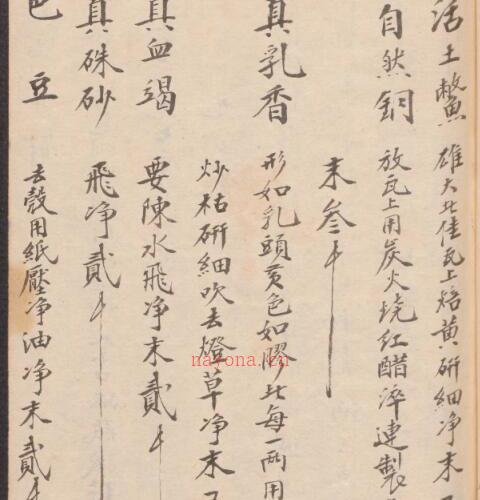 活土鱉 雄大者佳瓦上焙黃研細净末
自然銅 放瓦上用炭火燒紅醋淬連製
末叁千
真乳香 形如乳頭黄色如膠者每一兩用
炒枯研細吹去燈草净末
真血竭 要陳水飛净末貳千
真硃砂 飛净貳千
巴豆 去殼用紙壓净油净末貳千
nayona.cn